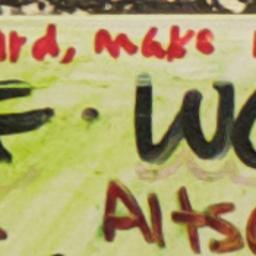 ard, make
F. Wo
Altso